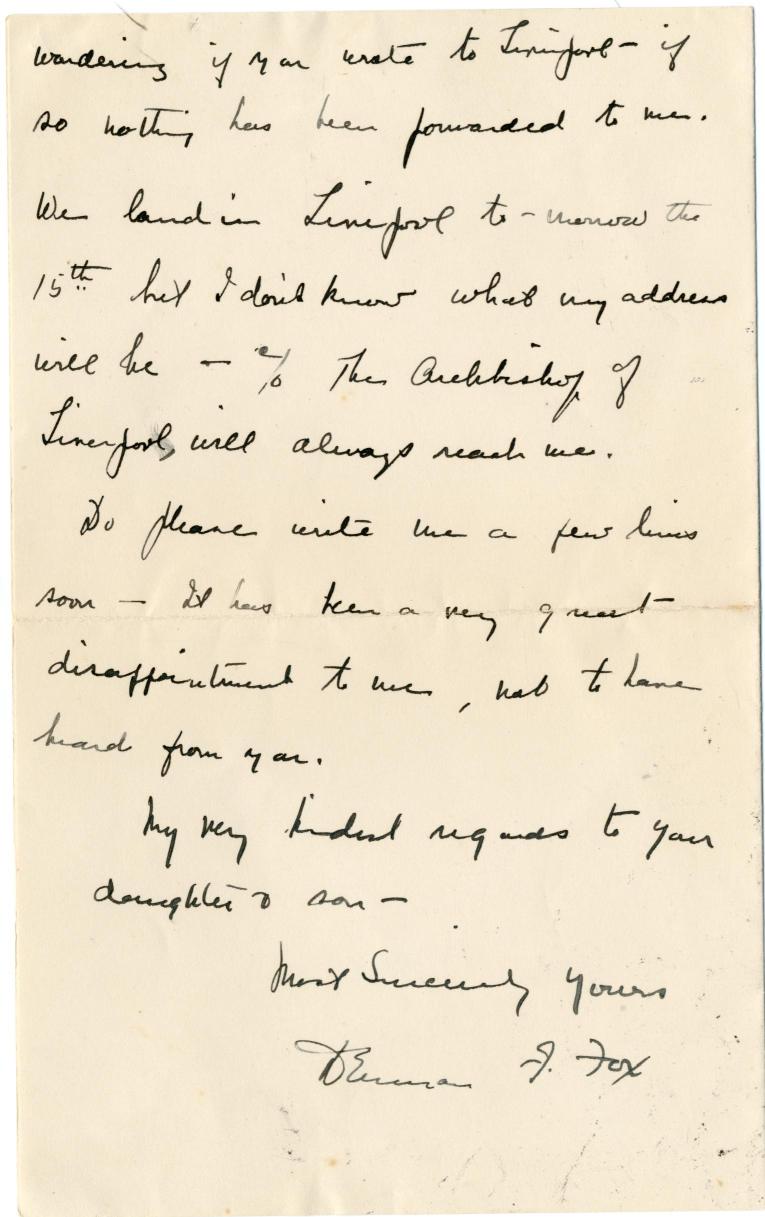 wondering if you wrote to Liverpool – if
so nothing has been forwarded to me.
We land in Liverpool to-morrow the
15th but I don't know what my address
will be – c/o The Archbishop of
Liverpool, will always reach me.
Do please write me a few lines
soon – It has been a very great
disappointment to me, not to have
heard from you.
My very kindest regards to your
daughter & son –
Most Sincerely Yours
J. Fox